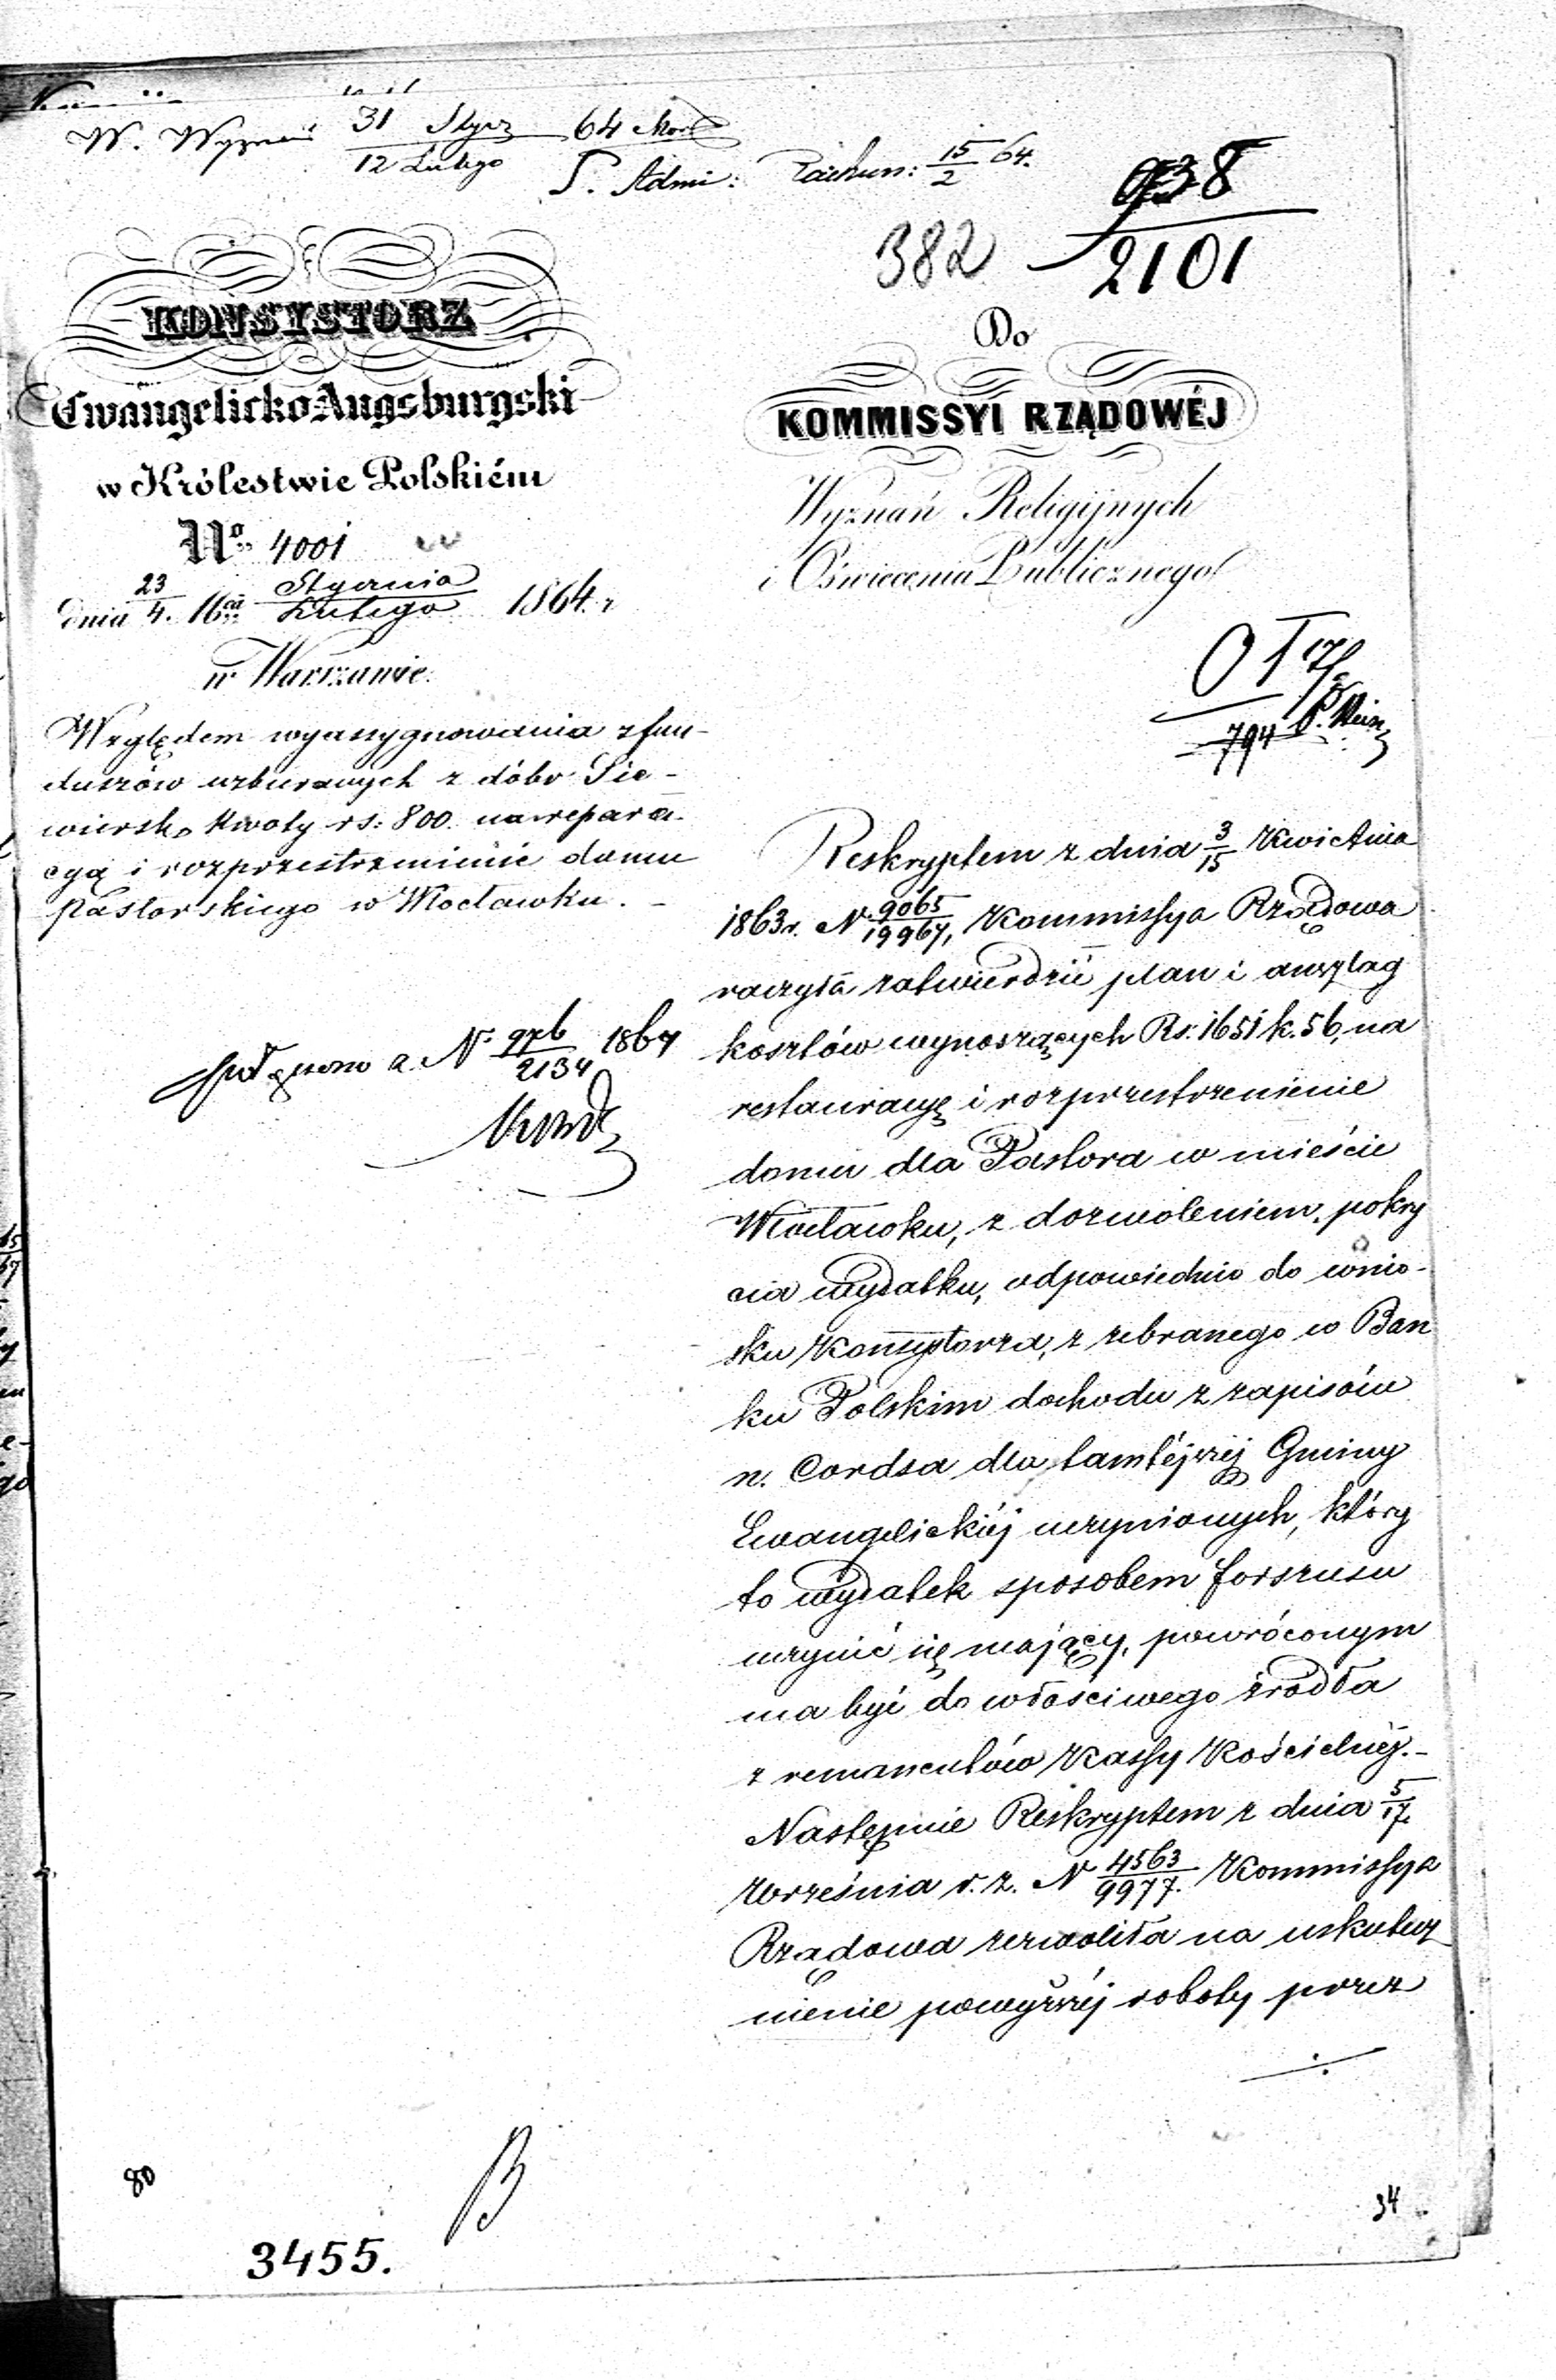 W. Wyznań 31 Stycz 64
12 Lutego
P. Admi: Rachun: 15/2 64.
938
2101
382
KONSYSTORZ
Ewangelicko Augsburgski
w Królestwie Polskiém
No 4001
dnia 23/4. 16ga Stycznia/Lutego 1864. r
w Warszawie.
Względem wyassygnowania z fun-
duszów uzbieranych z dóbr Sie-
wiersk. Kwoty rs: 800. na repara-
cyą i rozprzestrzenienie domu
pastorskiego w Włocławku. -
N. 976/2134 1864
Do
KOMMISSYI RZĄDOWÉJ
Wyznań Religijnych
i Oświecenia Publicznego
794
Reskryptem z dnia 3/15 Kwietnia
1863 r. N. 9065/19967, Kommissya Rządowa
raczyła zatwierdzić plan i anszlag
kosztów wynoszących Rs. 1651 k. 56, na
restauracyę i rozprzestrzenienie
domu dla Pastora w mieście
Włocławku, z dozwoleniem, pokry
cia wydatku, odpowiednio do wnio-
sku Konsystorza, z zebranego w Ban
ku Polskim dochodu z zapisów
n. Cordsa dla tamtéjszéj Gminy
Ewangelickiéj uczynionych, który
to wydatek sposobem forszusu
uczynić się mający, powróconym
ma być do właściwego źródła
z remanentów Kassy Kościelnéj. -
Następnie Reskryptem z dnia 5/17.
Września r. z. N 4563/9977. Kommissya
Rządowa zezwoliła na uskutecz
nienie powyższéj roboty przez
80
B
3455.
34